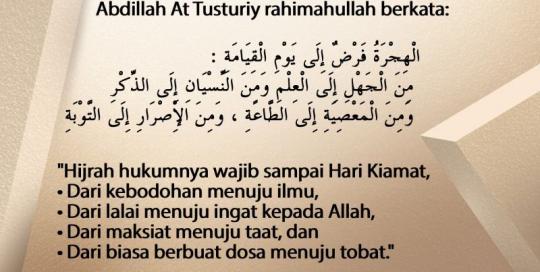 Abdillah At Tusturiy rahimahullah berkata:
الْهِجْرَةُ فَرْضٌ إِلَى يَوْمِ الْقِيَامَةِ :
مِنَ الْجَهْلِ إِلَى الْعِلْمِ وَمِنَ النِّسْيَانِ إِلَى الذِّكْرِ
وَمِنَ الْمَعْصِيَةِ إِلَى الطَّاعَةِ ، وَمِنَ الْإِصْرَارِ إِلَى التَّوْبَةِ
"Hijrah hukumnya wajib sampai Hari Kiamat,
• Dari kebodohan menuju ilmu,
• Dari lalai menuju ingat kepada Allah,
• Dari maksiat menuju taat, dan
• Dari biasa berbuat dosa menuju tobat."